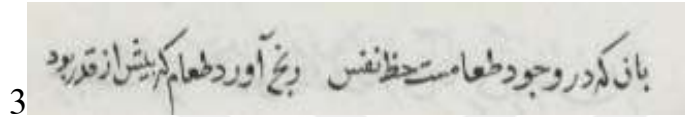 باآن که در وجود طعامست حظ نفس رنج آورد طعام که بیش از قدر بود
3